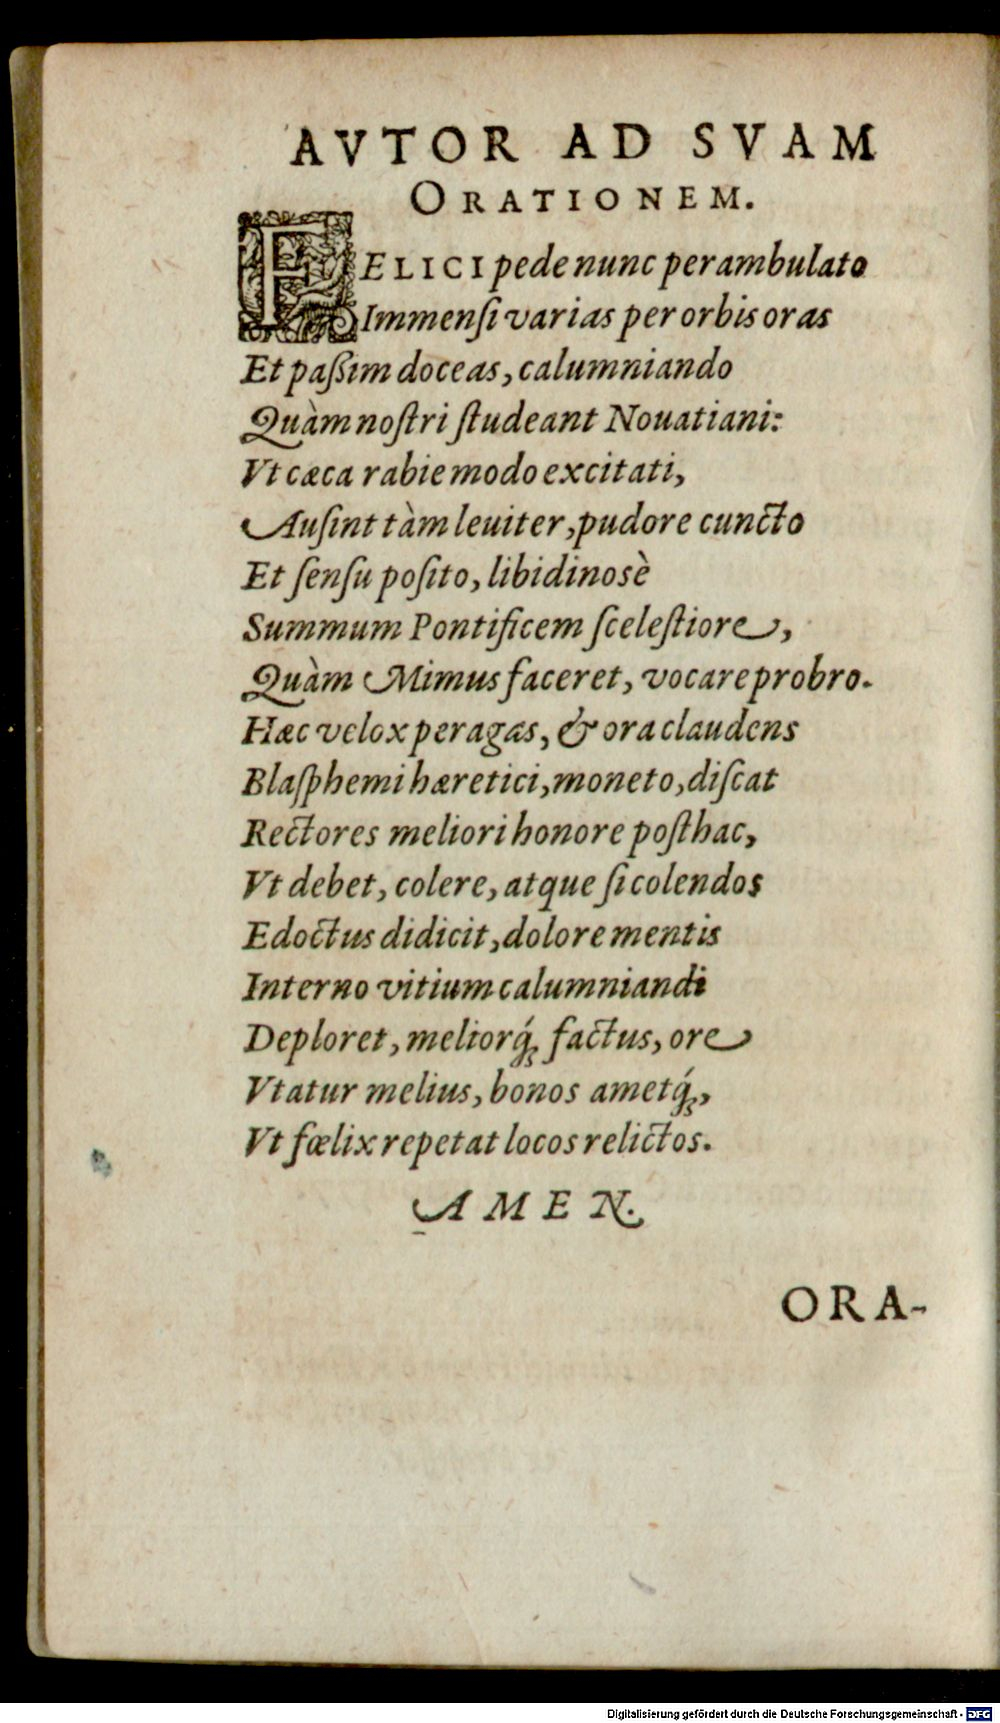 AVTOR AD SVAM
ORATIONEM.
FELICI pede nunc perambulato
Immenſi varias per orbis oras
Et paßim doceas, calumniando
Quàm noſtri ſtudeant Nouatiani:
Vt cæca rabie modo excitati,
Auſint tàm leuiter, pudore cuncto
Et ſenſu poſito, libidinosè
Summum Pontificem ſceleſtiore,
Quàm Mimus faceret, vocare probro.
Hæc velox peragas, & ora claudens
Blaſphemi hæretici, moneto, diſcat
Rectores meliori honore poſthac,
Vt debet, colere, atque ſi colendos
Edoctus didicit, dolore mentis
Interno vitium calumniandi
Deploret, meliorq́; factus, ore
Vtatur melius, bonos ametq́;,
Vt fœlix repetat locos relictos.
AMEN.
ORA-
Digitalisierung gefördert durch die Deutsche Forschungsgemeinschaft - DFG